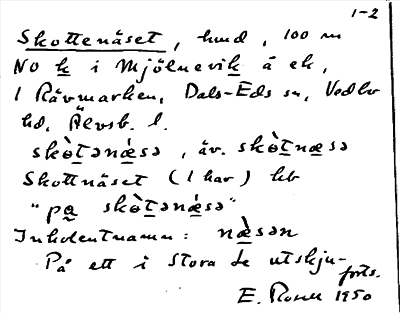 1-2
Skottenäset, hmd, 100 m
NO k i Mjölnevik å ek,
i Rävmarken, Dals-Eds sn, Vedbo
hd, Älvsb. l.
skò̀tənǽsə, äv. skò̀tnæsə
Skottnäset (1 har) hb
"pa skò̀tənǽsə"
Inholentnamn: næ̀sən
På ett i Stora Le utskju-
forts.
E. Rosell 1950